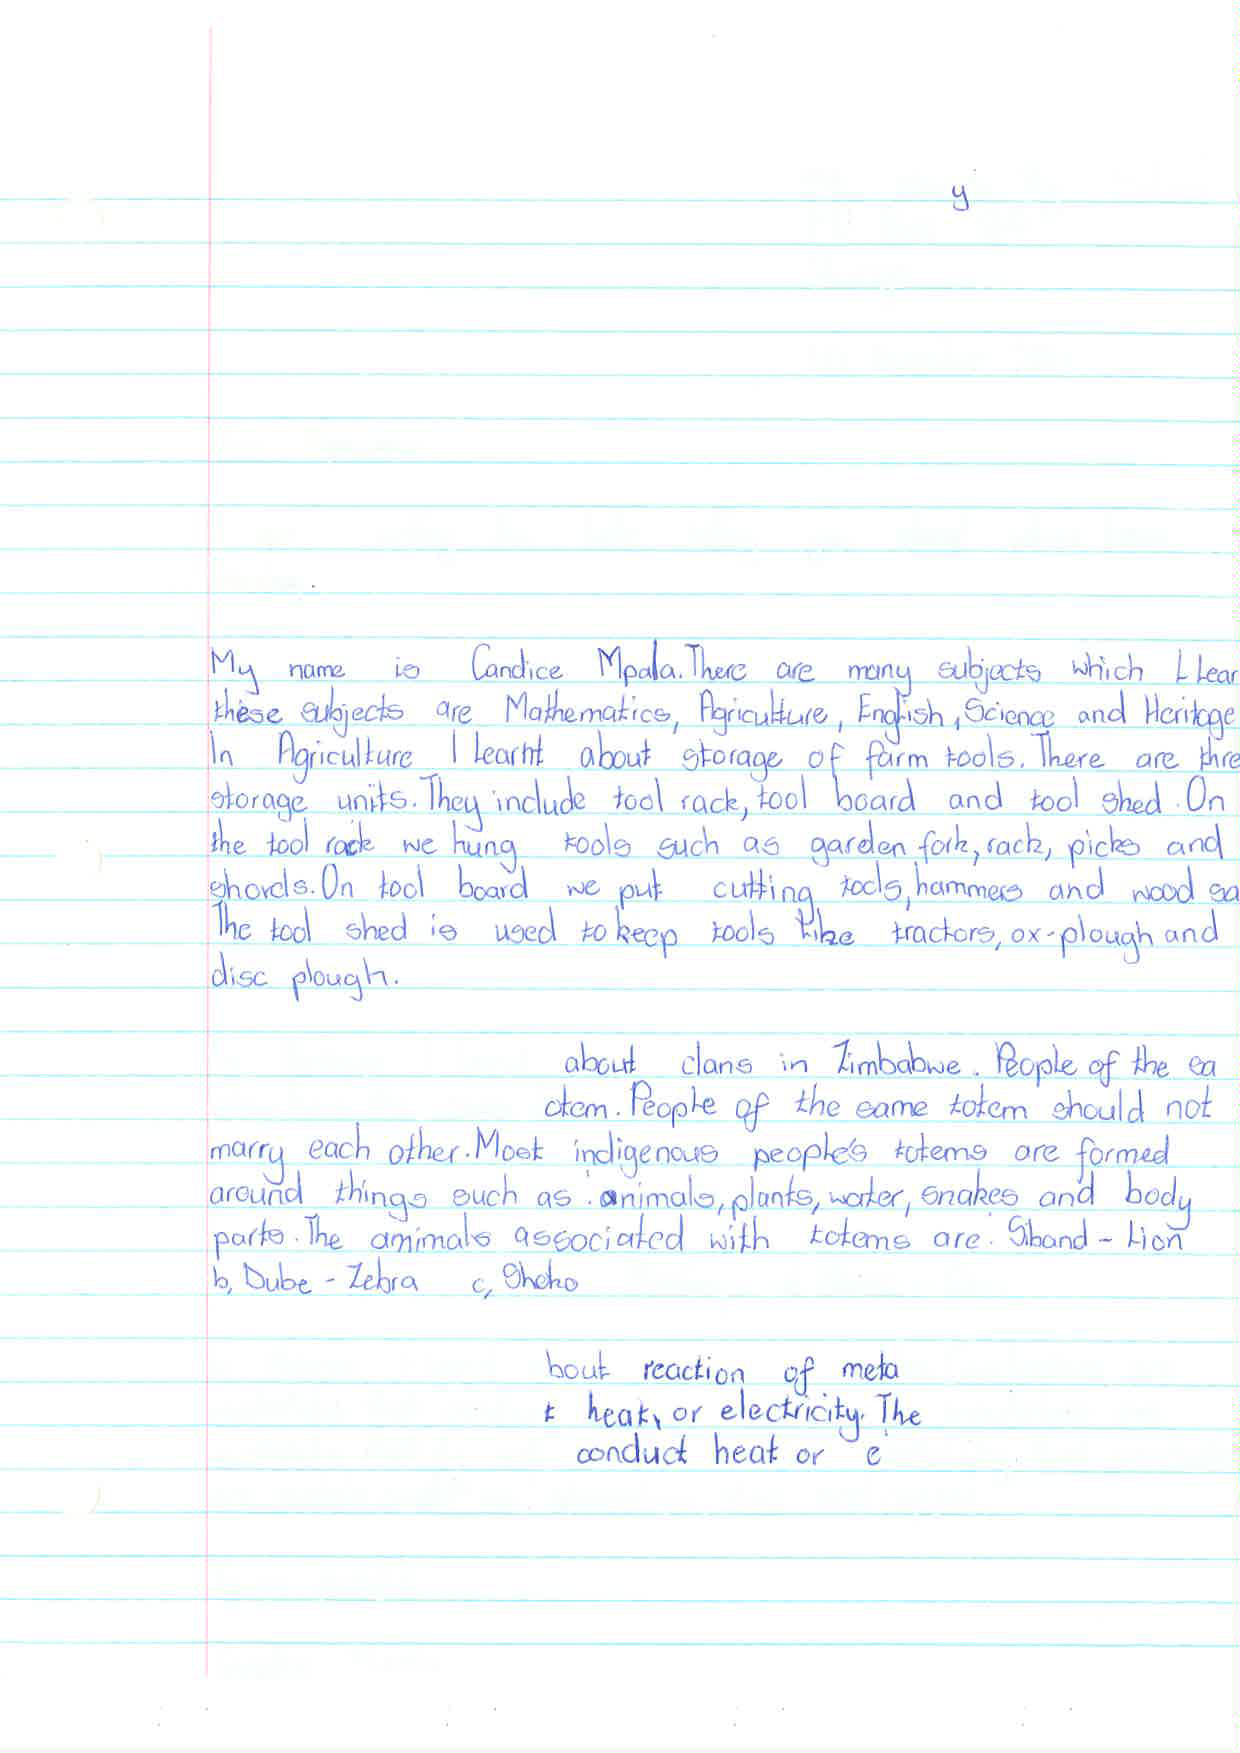 y
My name is Candice Mpala. There are many subjects which I lear
these subjects are Mathematics, Agriculture, English, Science and Heritage
In Agriculture I learnt about storage of farm tools. There are thre
storage units. They include tool rack, tool board and tool shed. On
the tool rack we hung tools such as garden fork, rack, picks and
shovels. On tool board we put cutting tools, hammers and wood sa
The tool shed is used to keep tools like tractors, ox-plough and
disc plough.
about clans in Zimbabwe. People of the sa
otem. People of the same totem should not
marry each other. Most indigenous people's totems are formed
around things such as : animals, plants, water, snakes and body
parts. The animals associated with totems are: Siband - Lion
b, Dube - Zebra c, Shoko
bout reaction of meta
t heat, or electricity. The
conduct heat or e